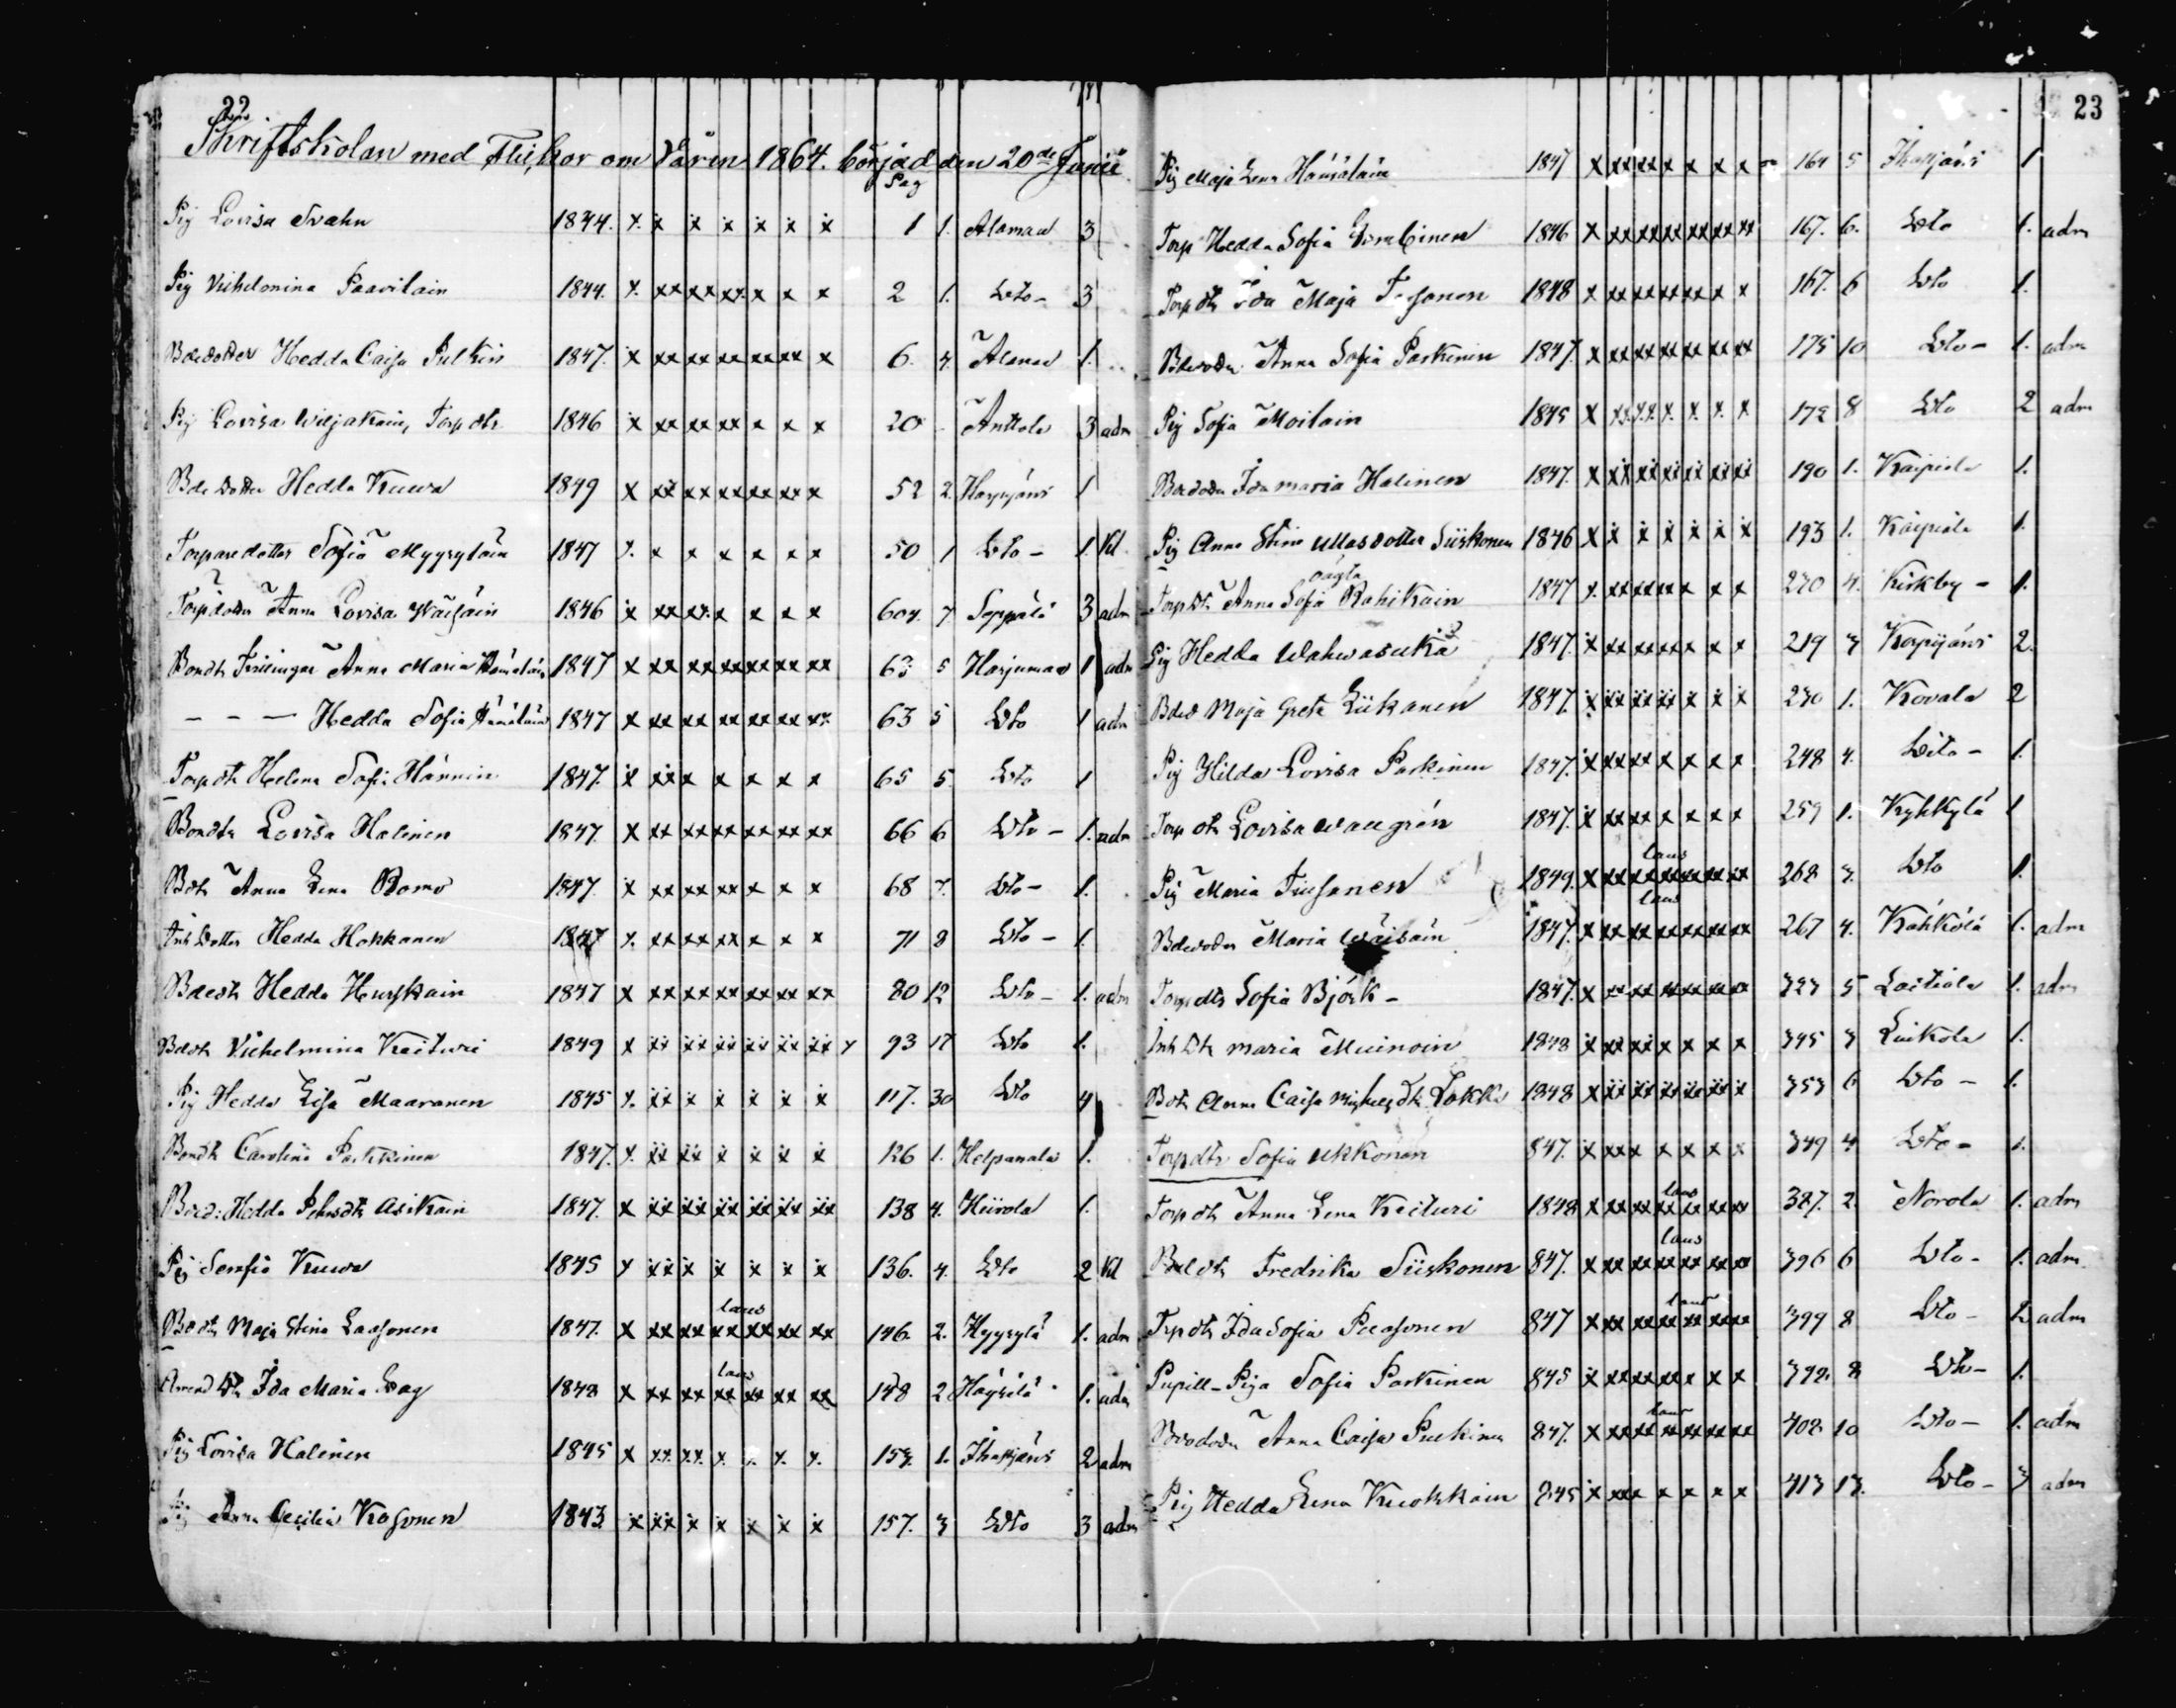 22
Skriftskolan med Flickor om Våren 1864. börjad den 20de Junii
Pag
Pig Lovisa Svahn 1844. x. x x x x x x 1 1. Alamaa 3
Pig Vilhelmina Paavilain 1844. x. xx xx xx. x x x 2 1. Dto - 3
Bdedotter Hedda Caisa Pulkin 1847. x xx xx xx xx xx x 6. 4. Alamaa 1.
Pig Lovisa Wiljakain, Torp dtr 1846 x xx xx xx x x x 20 - Anttola 3 adm
Bde dotter Hedda Kuuva 1849 x xx xx xx xx xx x 52 2. Harjujärvi 1
Torparedotter Sofia Myyryläin 1847 x. x x x x x x 50 1 Dto - 1. Kl
Torpdotter Anna Lovisa Wäisäin 1846 x xx xx. x x x x 604. 7 Seppälä 3 adm
Bondtr Tvillingar Anna Maria Hämäläin 1847 x xx xx xx xx xx xx 63 5 Harjumaa 1 adm
- - - Hedda Sofia Hämäläin 1847 x xx xx xx xx xx xx. 63 5 Dto 1 adm
Torp dtr Helena Sofia Hännin 1847. x xx x x x x x 65 5. Dto 1
Bondtr Lovisa Halinen 1847. x xx xx xx xx xx xx 66 6 Dto - 1. adm
Bdtr Anna Lena Romo 1847. x xx xx xx x x x 68 7. Dto - 1.
Inh Dotter Hedda Hokkanen 1847 x. xx xx xx x x x 71 8 Dto - 1.
Bdedtr Hedda Hurskain 1847 x xx xx xx xx xx xx 80 12 Dto - 1. adm
Bdedtr Vilhelmina Keituri 1849 x xx xx xx xx xx xx x 93 17 Dto 1.
Pig Hedda Lisa Maaranen 1845 x. xx x x x x x 117. 30 Dto 4
Bondtr Carolina Parkkinen 1847. x. xx xx x x x x 126 1. Helpanala 1.
Bded. Hedda Johsdtr Asikain 1847. x xx xx xx xx xx xx 138 4. Hiirola 1.
Pig Serafia Kuuva 1845 x xx x x x x x 136. 4. Dto 2 Kl
Bdedtr Maja Stina Laasonen 1847. x xx xx laus xx xx xx xx 146. 2. Hyyrylä 1. adm
Arend Dtr Ida Maria Dag 1848 x xx xx laus xx xx xx xx 148 2 Häyrilä 1. adm
Pig Lovisa Halinen 1845 x xx. xx. x. x. x. x. 153. 1. Ihastjärvi 2 adm
Pig Anna Cecilia Kosonen 1843 x xx x x x x x 157. 3 Dto 3 adm
23
Pig Maja Lena Hämäläin 1847 x xx xx x x x x 164 5 Ihastjärvi 1
Torp Hedda Sofia 1846 x xx xx xx xx xx xx 167. 6. Dto 1. adm
Torp dtr Ida Maja 1848 x xx xx xx xx x x 167. 6 Dto 1.
Bdedotter Anna Sofia Parkinin 1847. x xx xx xx xx xx xx 175 10 Dto - 1. adm
Pig Sofia Moilain 1845 x xx. xx. x. x. x. x 172 8 Dto 2 adm
Bdedotr Ida Maria Halinen 1847. x xx xx xx xx xx xx 190 1. Kaipiala 1.
Pig Anna Stina Ullasdotter Siiskonen 1846 x x x x x x x 193 1. Kaipiala 1.
Torp Dtr Anna Sofia oägta Rahikain 1847 x. xx xx xx x x x 270 4. Kirkby - 1.
Pig Hedda Wahwaselkä 1847. x xx xx xx x x x 219 3 Korpijärvi 2.
Bded Maja Greta Liikanen 1847. x xx xx xx x x x 230 1. Kovala 2
Pig Hilda Lovisa Parkinen 1847. x xx xx x x x x 248 4. Dito - 1.
Torp dtr Lovisa Wangrén 1847. x xx xx x x x x 259 1. Kyhkylä 1
Pig Maria Tiusanen 1849. x xx xx laus xx xx xx xx 268 3. Dto 1.
Bdedotter Maria Wäisäin 1847. x xx xx laus xx xx xx xx 267 4. Kähkölä 1. adm
Torpdtr Sofia Björk - 1847. x xx xx xx xx xx xx 323 5 Laitiala 1. adm
Inh Dtr Maria Muinoin 1848 x xx xx x x x x 345 3 Liukola 1.
Bdtr Anna Caisa Michelsdtr Lokka 1848 x xx xx xx xx xx x 353 6 Dto - 1.
Torpdtr Sofia Ukkonen 847. x xx x x x x x 349 4 Dto - 1.
Torp dtr Anna Lena Keituri 1848 x xx xx laus xx xx xx xx 387. 2. Norola 1. adm
Bdedtr Fredrika Siiskonen 847. x xx xx laus xx xx xx xx 396 6 Dto - 1. adm
Torp dtr Ida Sofia Puasonen 847 x xx xx laus xx xx xx xx 399 8 Dto - 2 adm
Pupill-Piga Sofia Parkinen 845 x xx xx xx x x x 392. 8 Dto - 1.
Bdedotr Anna Caisa Pulkinen 847. x xx xx laus xx xx xx xx 402 10 Dto - 1. adm
Pig Hedda Lena Kuokkain 845 x xx x x x x x 413 13. Dto - 3 adm